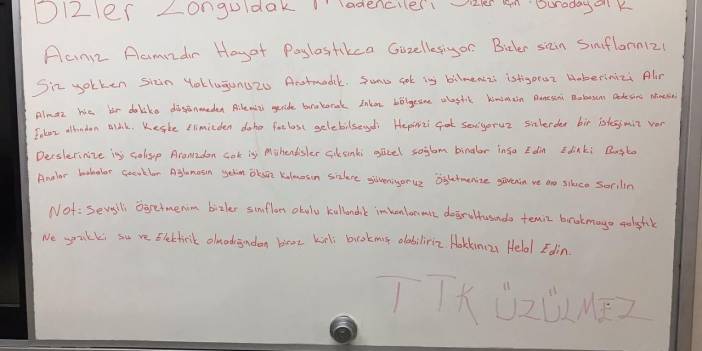 Bizler Zonguldak Madencileri Sizler için Buradaydık
Acınız Acımızdır Hayat Paylaştıkca Güzelleşiyor Bizler sizin Sınıflarınızı
Siz yokken Sizin Yokluğunuzu Aratmadık. Şunu çok iyi bilmenizi istiyoruz Haberinizi Alır
Almaz hiç bir dakka düşünmeden Ailemizi geride bırakarak Enkaz bölgesine ulaştık kiminizin Annesini Babasını Dedesini Ninesini
Enkaz altından Aldık. Keşke Elimizden daha fazlası gelebilseydi Hepinizi Çok Seviyoruz Sizlerden bir isteğimiz var
Derslerinize iyi çalışıp Aranızdan çok iyi Mühendisler Çıksınki güzel sağlam binalar inşa Edin Edinki Başka
Analar babalar çocuklar Ağlamasın yetim Öksüz kalmasın sizlere güveniyoruz Öğretmenize güvenin ve ona sıkıca Sarılın
Not: Sevgili Öğretmenim bizler sınıfları okulu kullandık imkanlarımız doğrultusunda temiz bırakmaya çalıştık
Ne yazıkki su ve Elektirik olmadığından biraz kirli bırakmış olabiliriz Hakkınızı Helal Edin.
TTK ÜZÜLMEZ